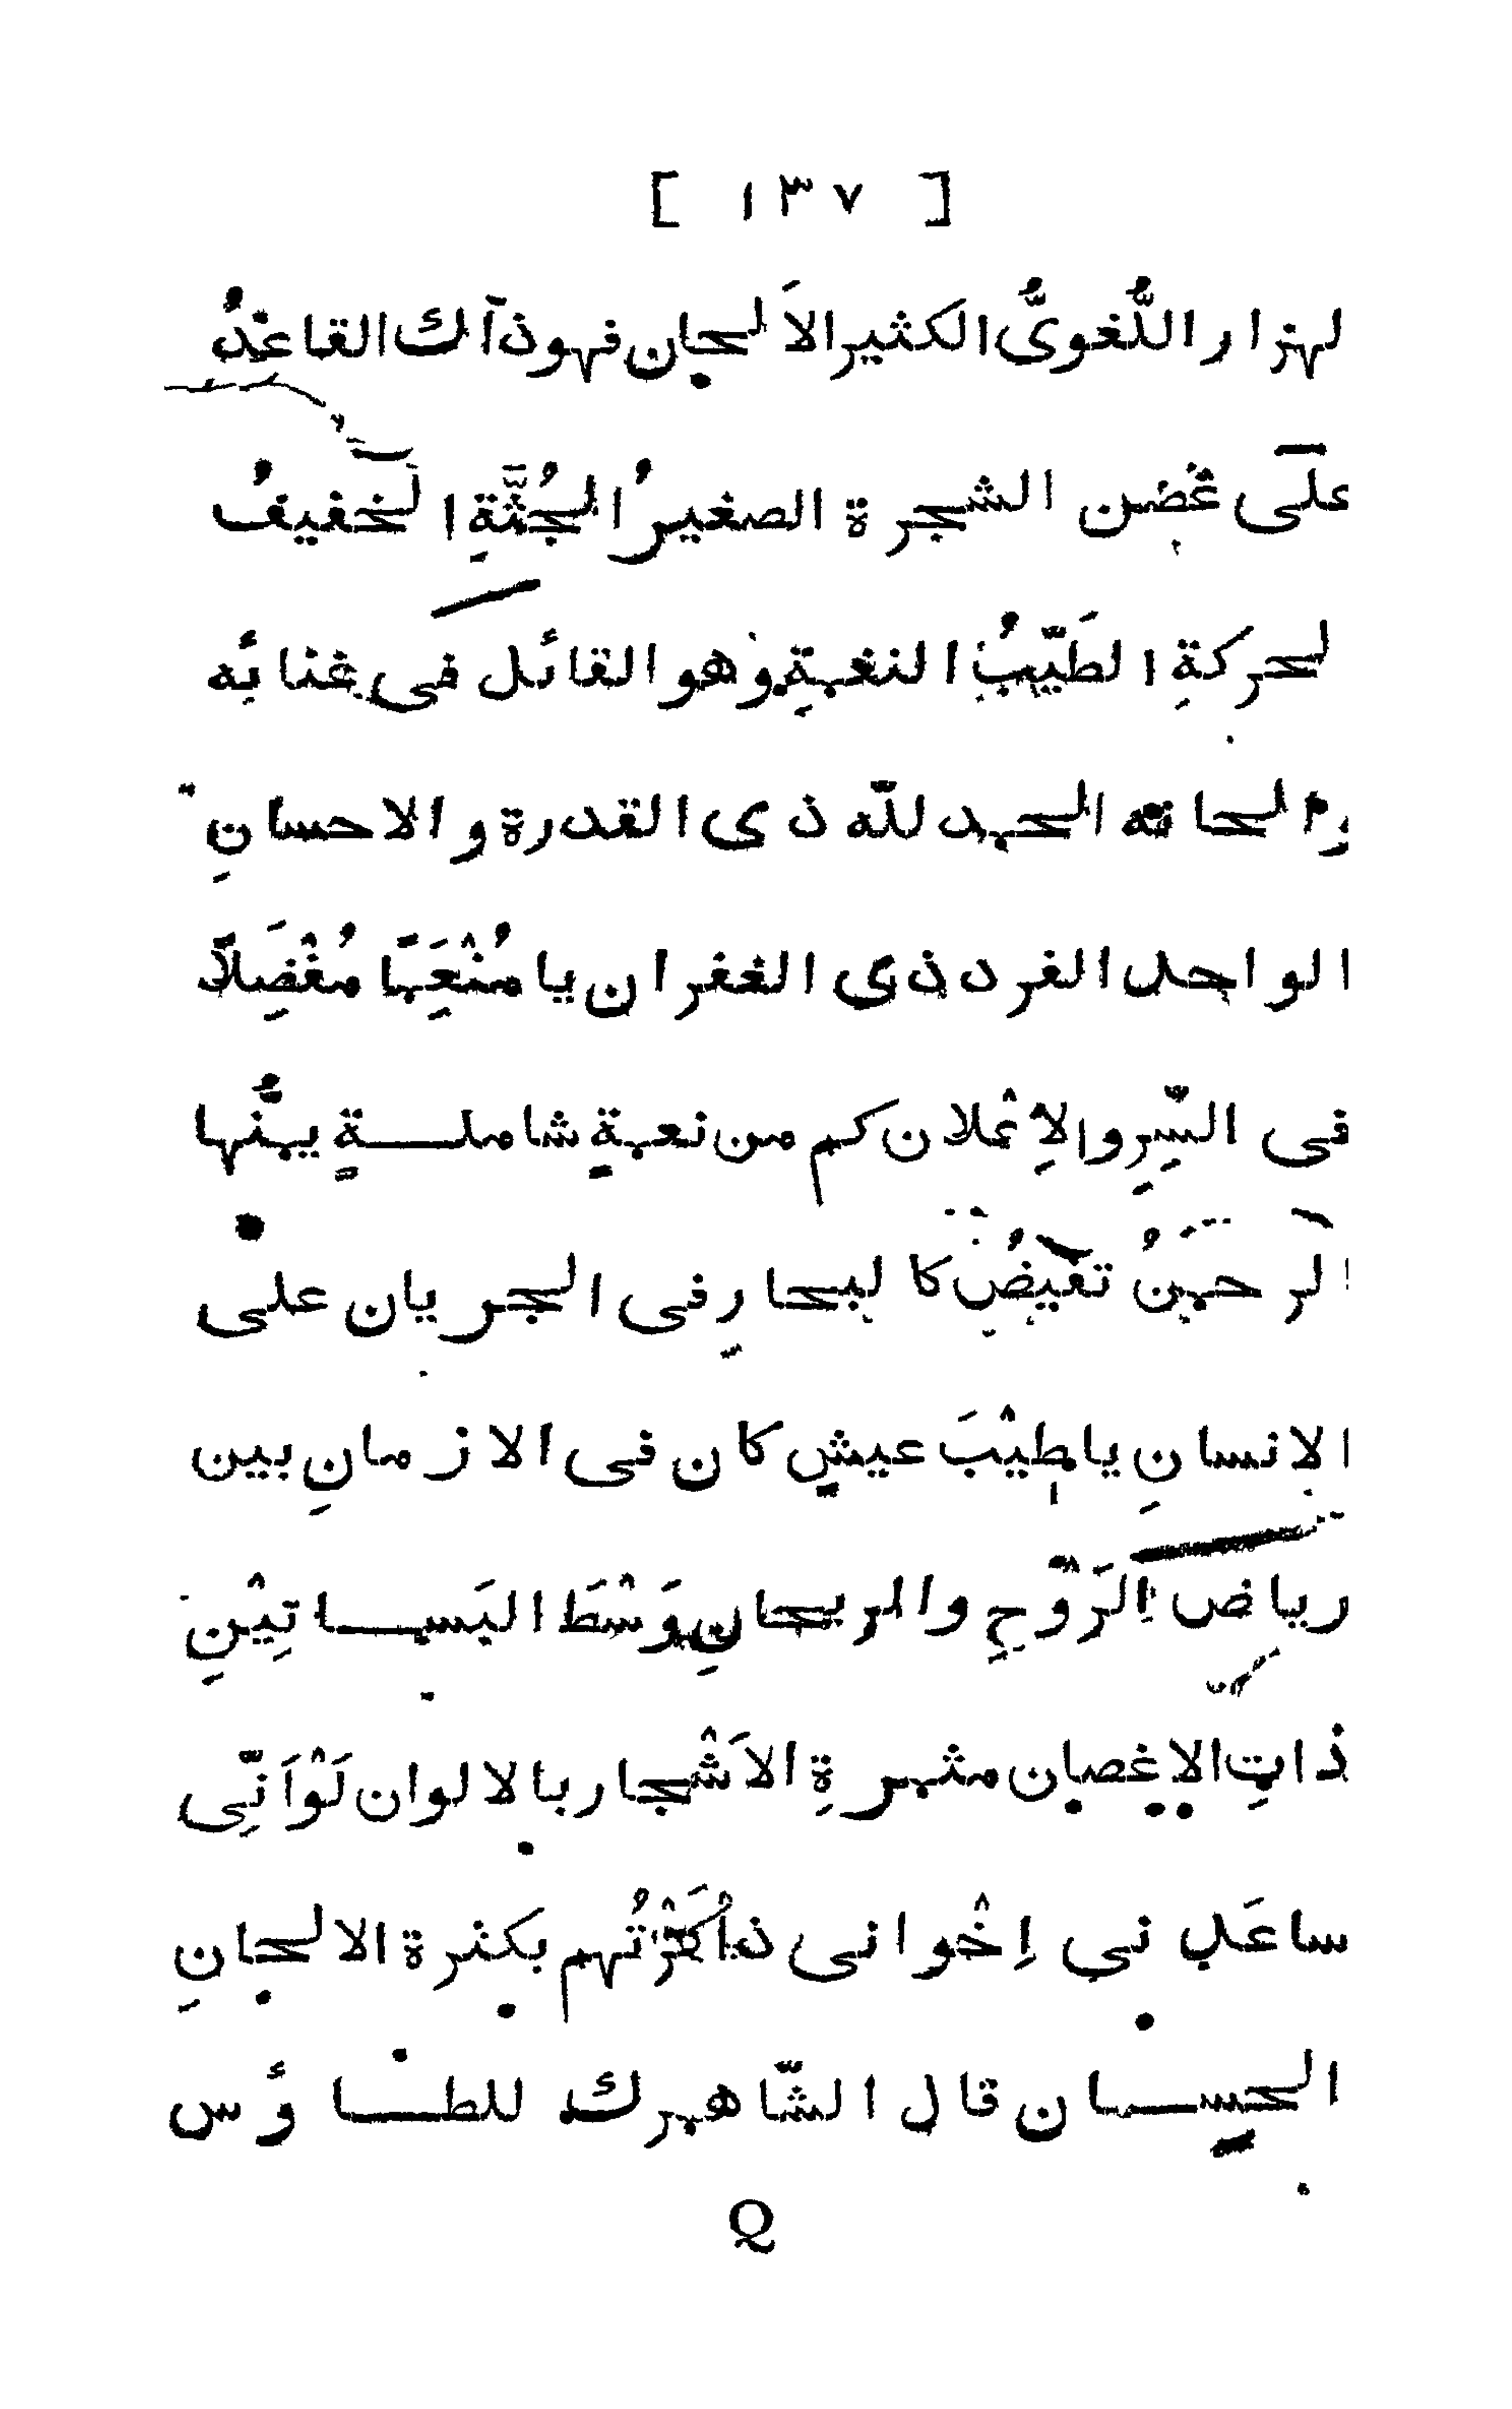 [ ١٣٧ ]
لهزار اللُّغوىُّ الكثير الاَلحان فهو ذآك القاعدُ
علَى غُصْن الشجرة الصغيرُ الجُثَّةِ الخفيفُ
لحركةِ الطَيّبُ النغمةِ وهو القائل فى غنائه
والحانه الحمد للّه ذى القدرة والاحسانِ
الواحد الفرد ذى الغفران يا مُنْعِمًا مُفْضِلًا
فى السِّرِ والاِعْلان كم من نعمةٍ شاملةٍ يمنُّها
الرحمنُ تفيضُ كالبحارِ فى الجريان على
الانسانِ يا طِيْبَ عيشٍ كان فى الازمانِ بين
رياض الرَوْحِ والريحانِ وَسْطَ البَساتِيْنِ
ذاتِ الاغصان مثمرةِ الاَشْجار بالالوان لَوْ اَنِّى
ساعَدنى اِخْوانى ذاكَرْتُهم بكثرة الالحانِ
الحِسان قال الشّاهمرك للطاؤس
Q